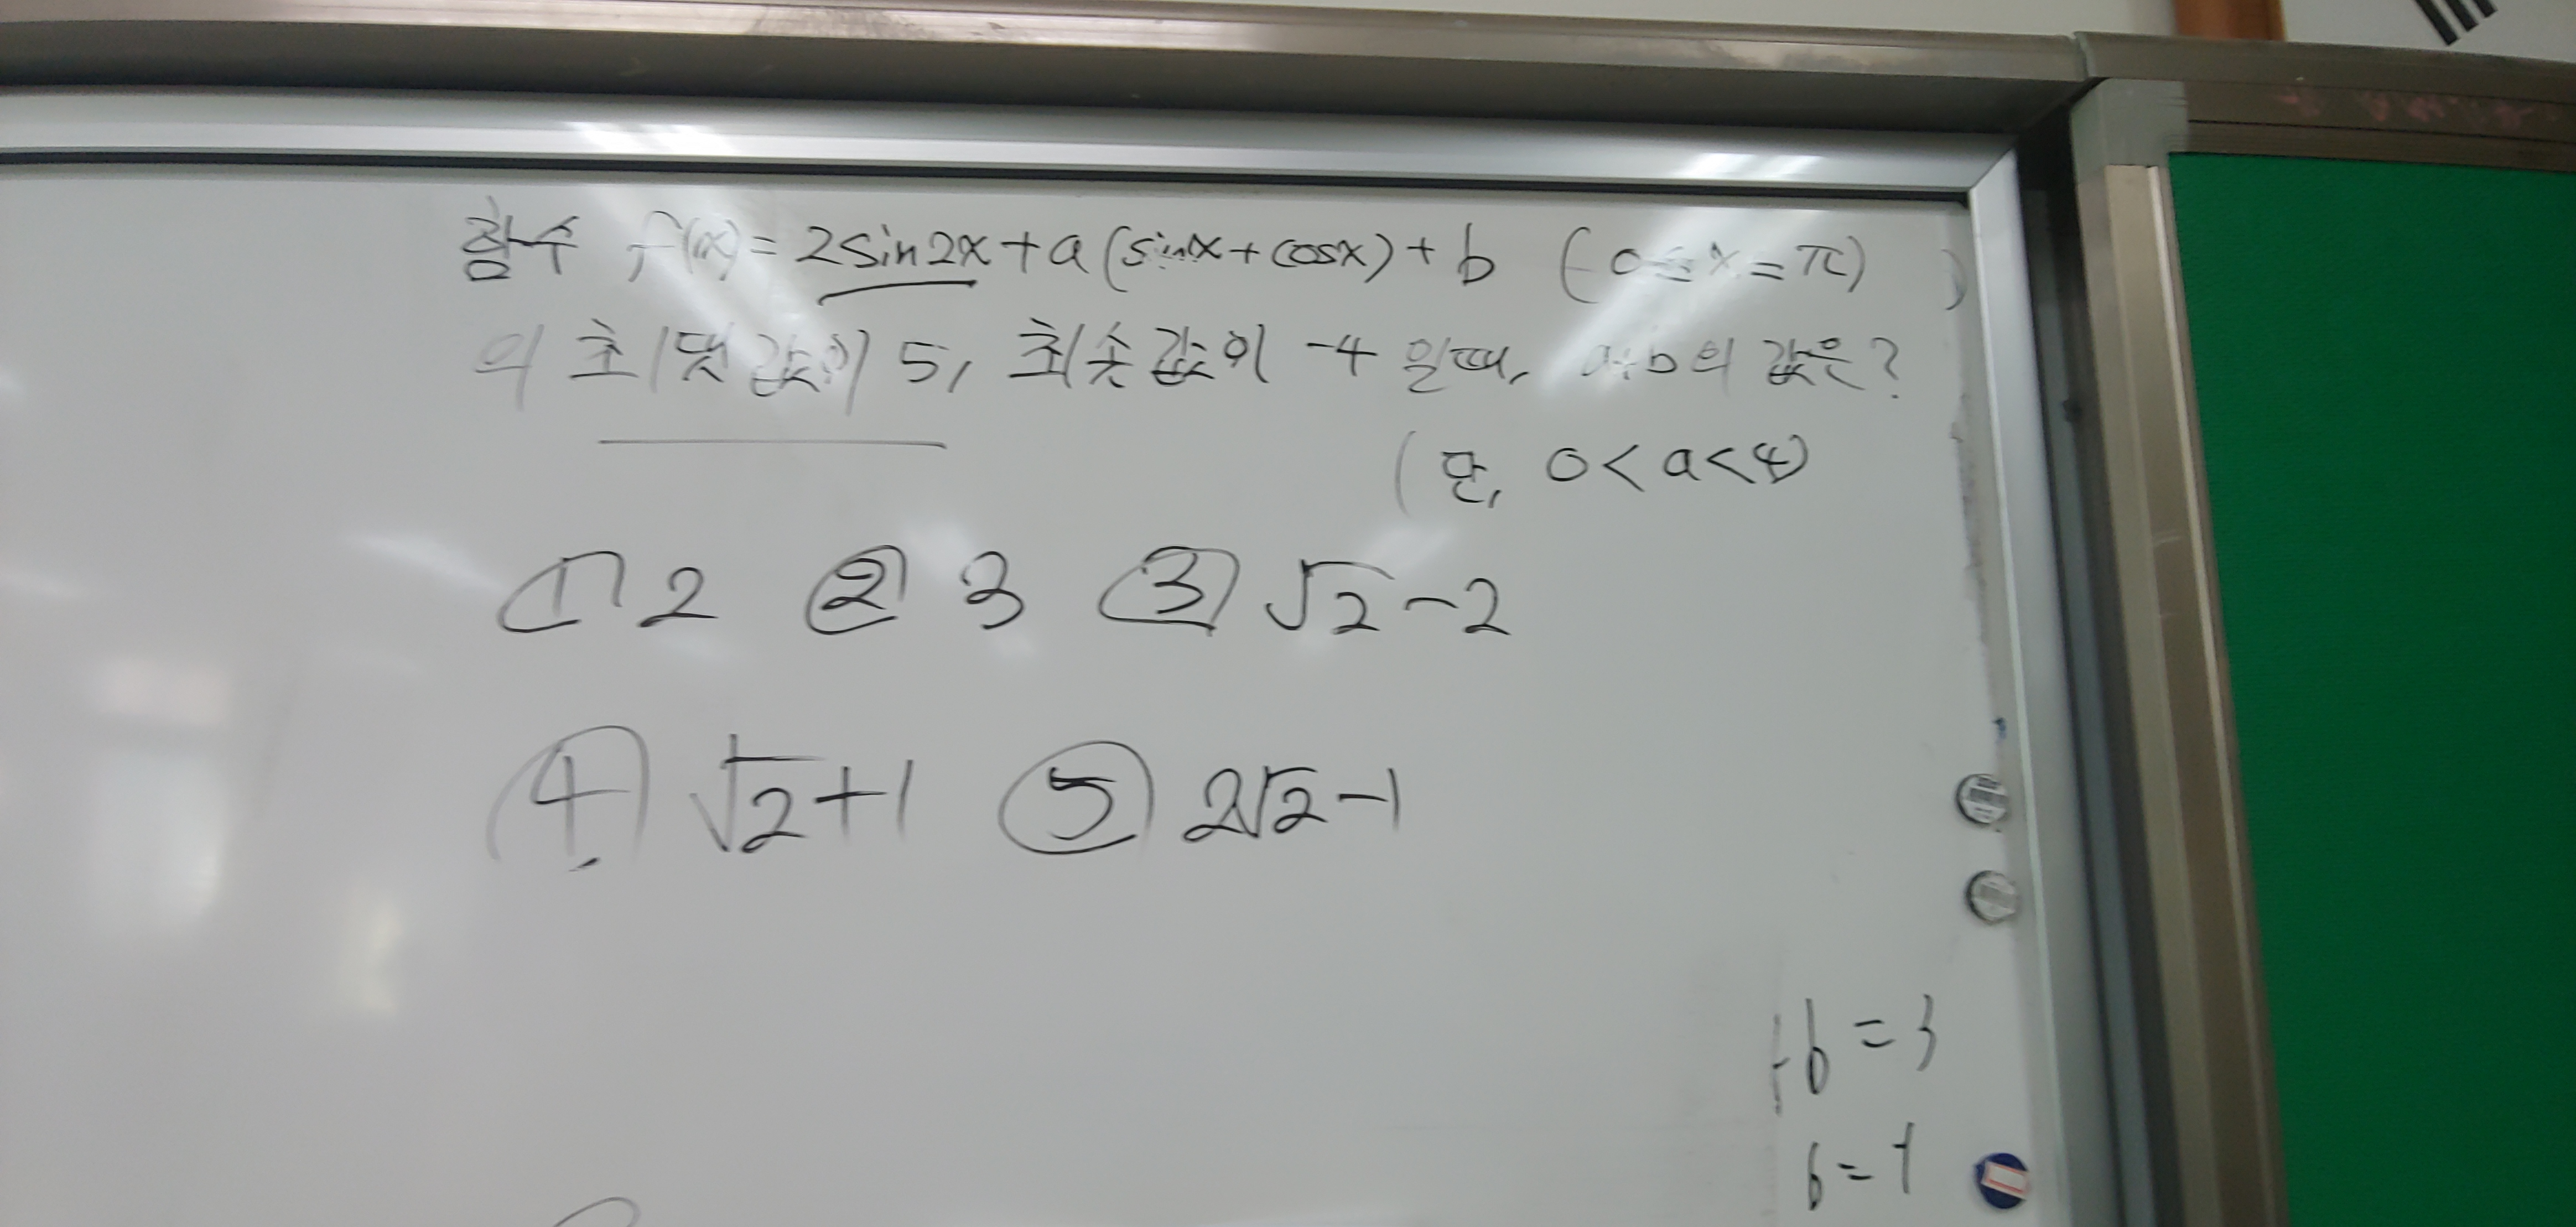 함수 f(x) = 2sin2x + a (sinx + cosx) + b (0≤x≤π)
의 최댓값이 5, 최솟값이 -4 일때, a+b의 값은?
(단, 0<a<4)
① 2 ② 3 ③ √2-2
④ √2+1 ⑤ 2√2-1
+b=3
b=1